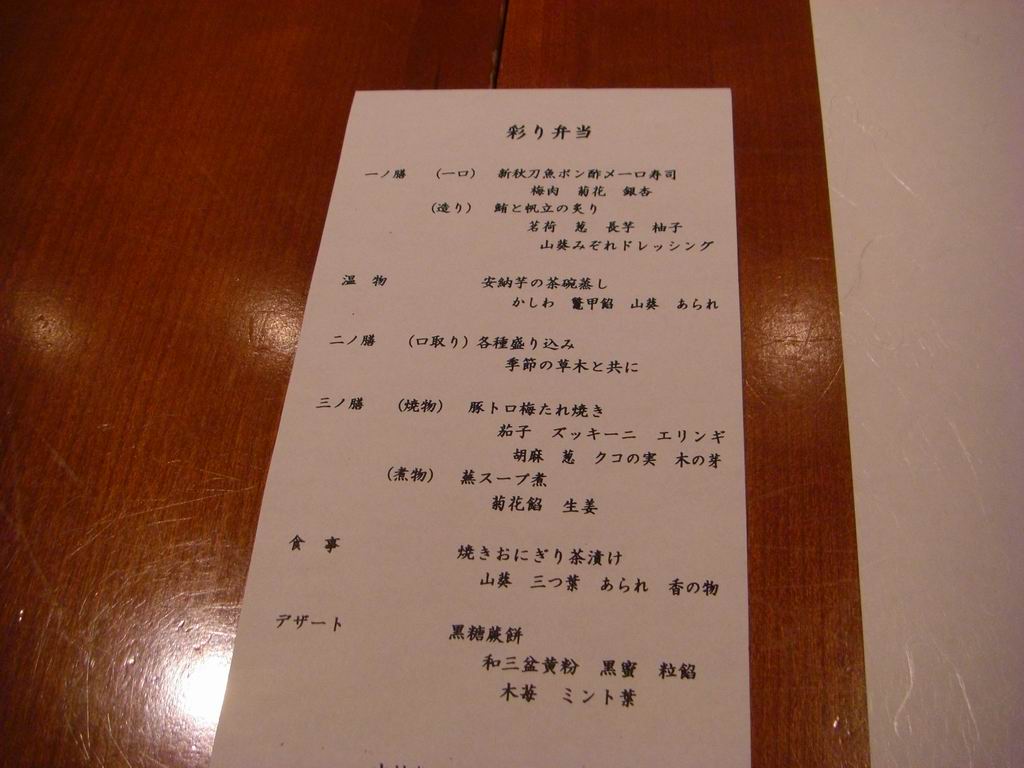 彩り弁当
一ノ膳 (一口) 新秋刀魚ポン酢〆一口寿司
梅肉 菊花 銀杏
(造り) 鮪と帆立の炙り
茗荷 葱 長芋 柚子
山葵みぞれドレッシング
温物 安納芋の茶碗蒸し
かしわ 鼈甲餡 山葵 あられ
二ノ膳 (口取り) 各種盛り込み
季節の草木と共に
三ノ膳 (焼物) 豚トロ梅たれ焼き
茄子 ズッキーニ エリンギ
胡麻 葱 クコの実 木の芽
(煮物) 蕪スープ煮
菊花餡 生姜
食事 焼きおにぎり茶漬け
山葵 三つ葉 あられ 香の物
デザート 黒糖蕨餅
和三盆黄粉 黒蜜 粒餡
木苺 ミント葉